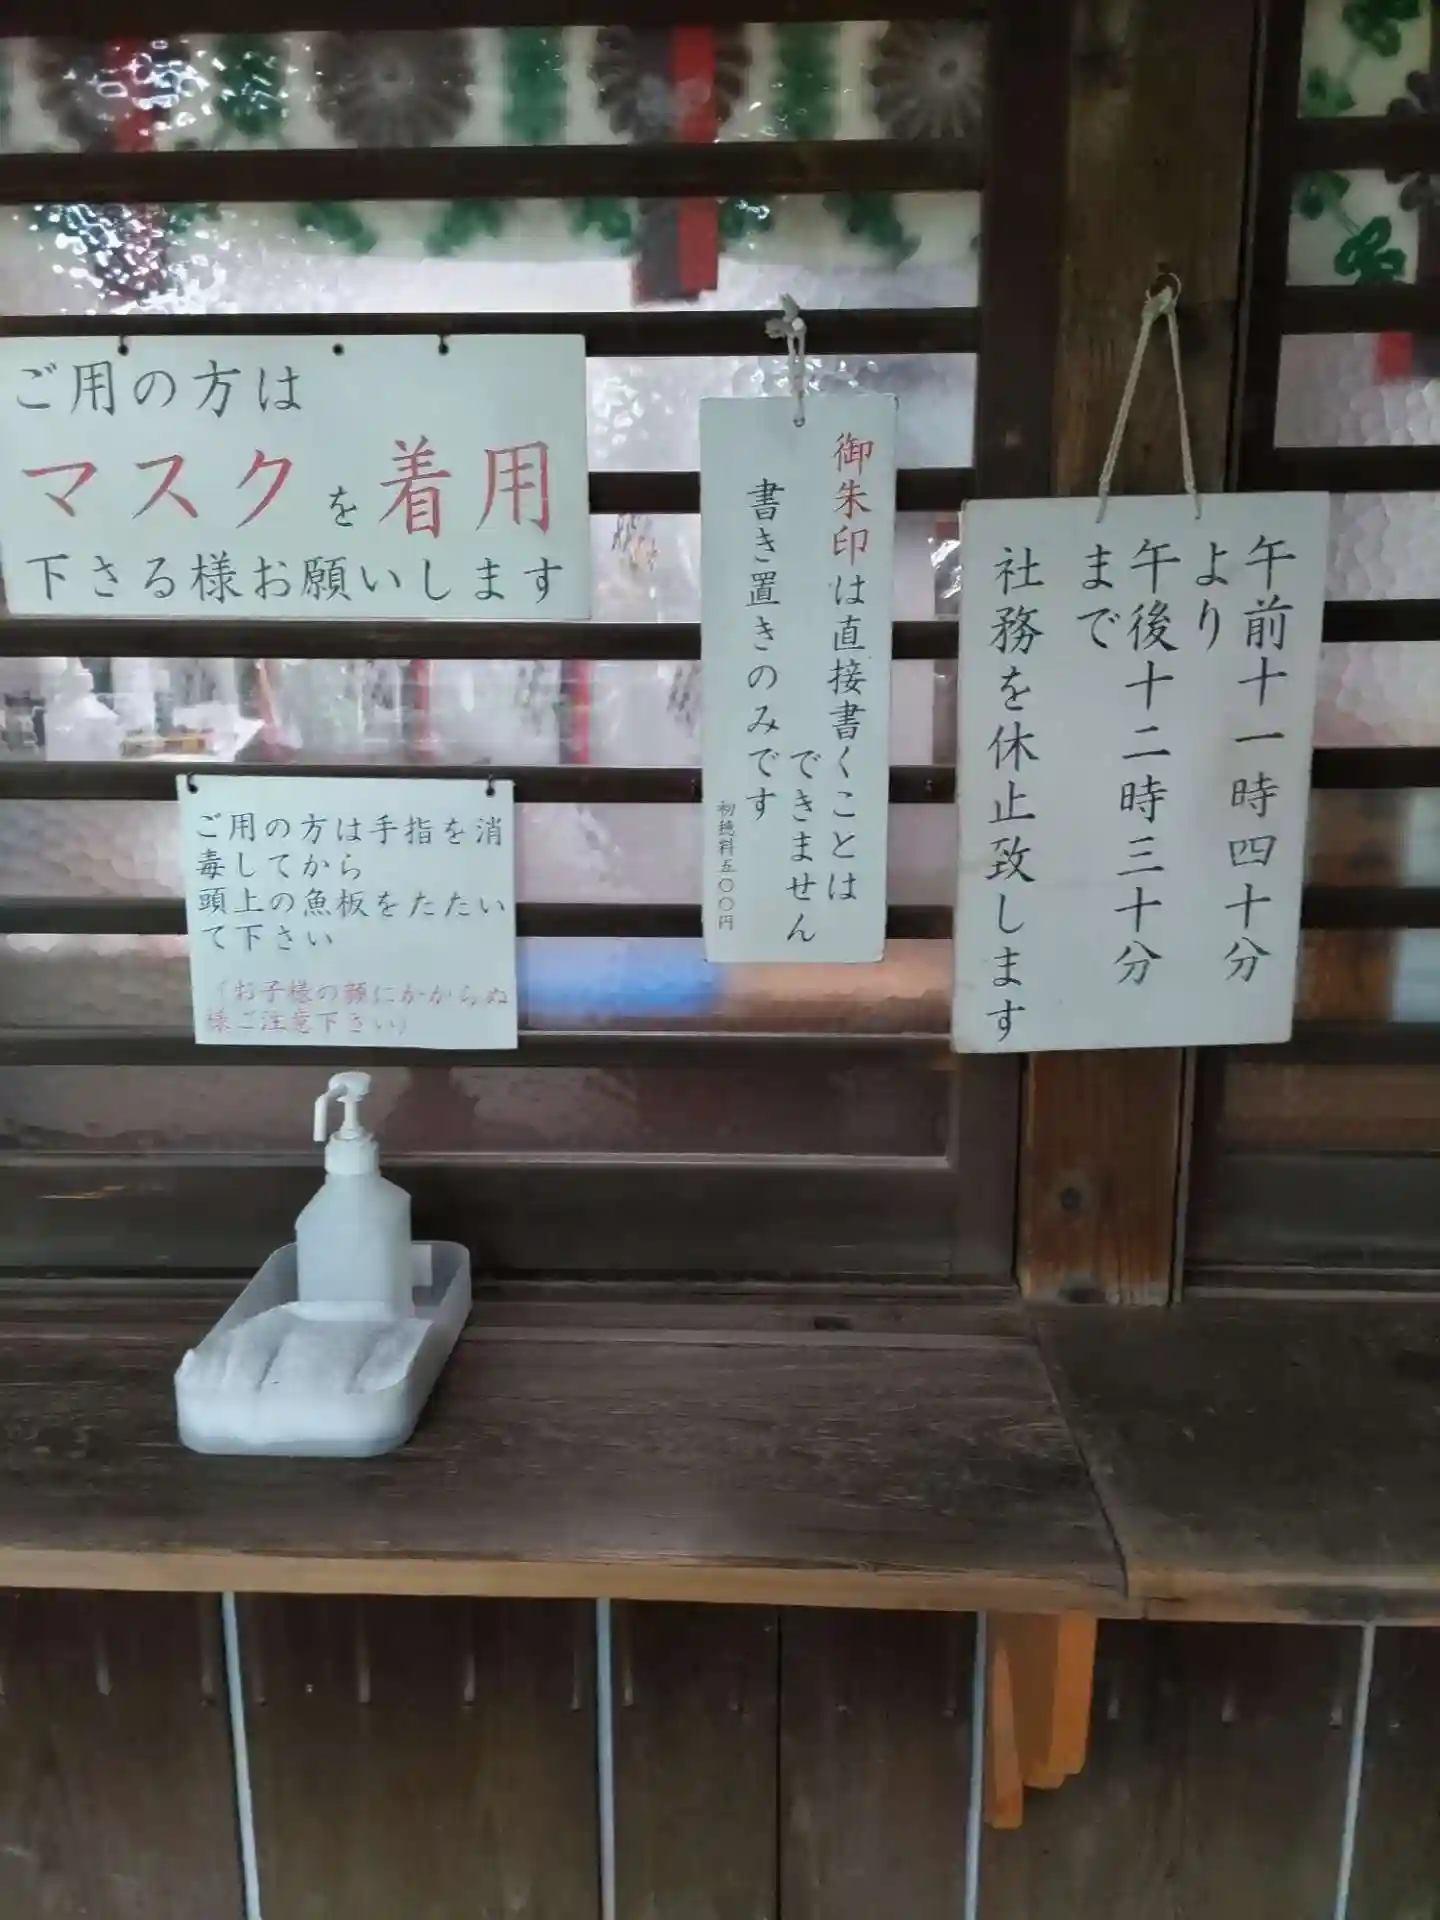 ご用の方は
マスクを着用
下さる様お願いします
ご用の方は手指を消
毒してから
頭上の魚板をたたい
て下さい
（お子様の顔にかからぬ
様ご注意下さい）
御朱印は直接書くことは
できません
書き置きのみです
初穂料五〇〇円
午前十一時四十分
より
午後十二時三十分
まで
社務を休止致します